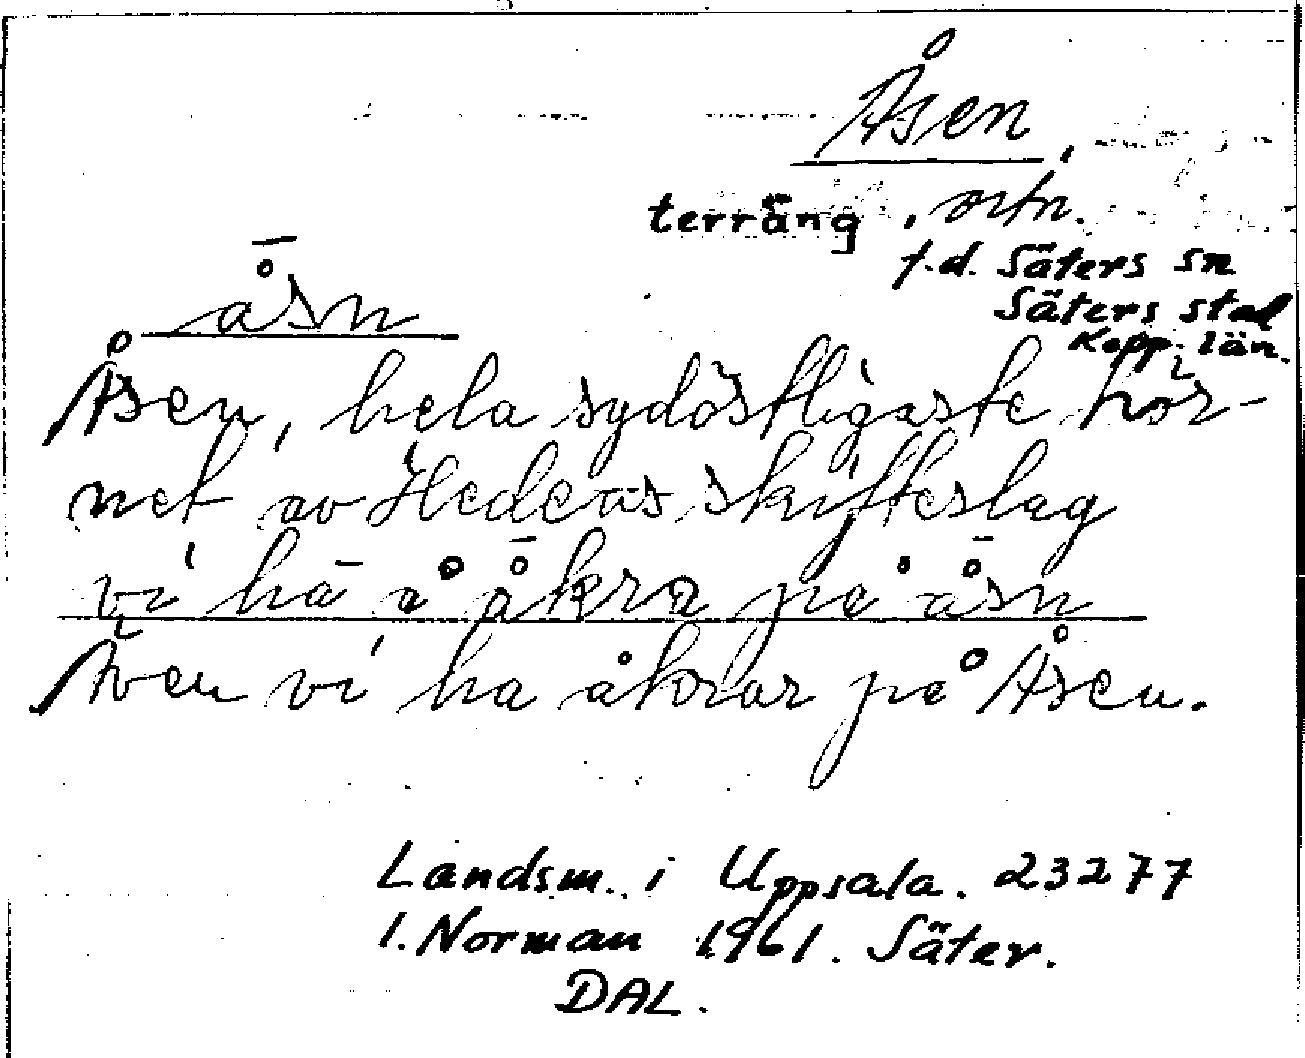 Åsen,
terräng, ortn.
f.d. Säters sn
Säters stad
Kopp. län.
å̄sn
Åsen, hela sydöstligaste hör-
net av Hedens skifteslag
vi hā å å̄kra på å̄sn
Även vi ha åkrar på Åsen.
Landsm. i Uppsala. 23277
I. Norman 1961. Säter.
DAL.